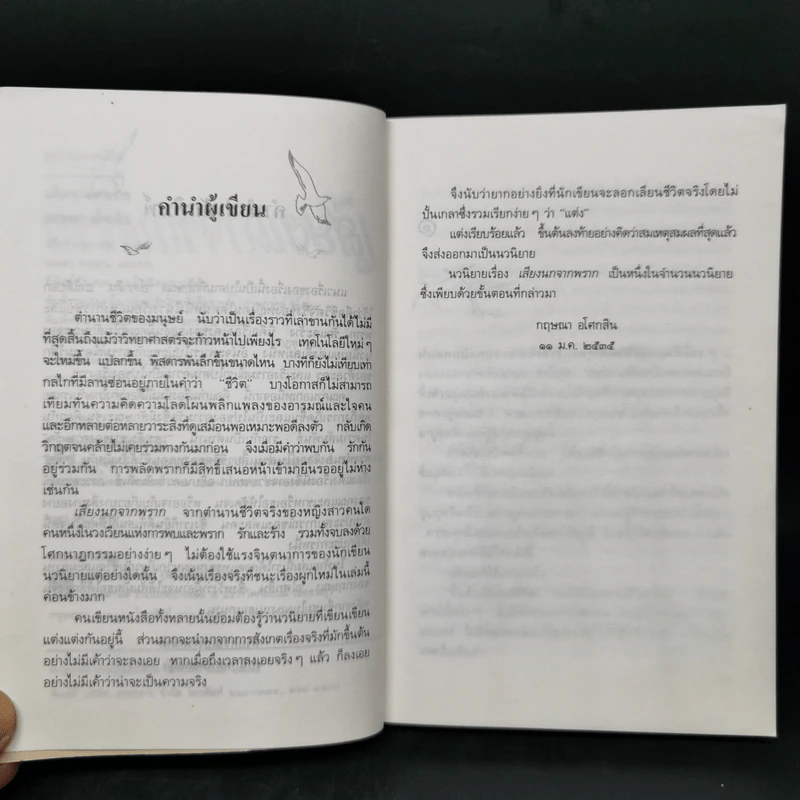 คำนำผู้เขียน
ตำนานชีวิตของมนุษย์ นับว่าเป็นเรื่องราวที่เล่าขานกันได้ไม่มี
ที่สุดสิ้นถึงแม้ว่าวิทยาศาสตร์จะก้าวหน้าไปเพียงไร เทคโนโลยีใหม่ๆ
จะใหม่ขึ้น แปลกขึ้น พิสดารพันลึกขึ้นขนาดไหน บางทีก็ยังไม่เทียบเท่า
กลไกที่มีลานซ่อนอยู่ภายในคำว่า "ชีวิต" บางโอกาสก็ไม่สามารถ
เทียมทันความคิดความโลดโผนพลิกแพลงของอารมณ์และใจคน
และอีกหลายต่อหลายวาระสิ่งที่ดูเสมือนพอเหมาะพอดีลงตัว กลับเกิด
วิกฤตจนคล้ายไม่เคยร่วมทางกันมาก่อน จึงเมื่อมีคำว่าพบกัน รักกัน
อยู่ร่วมกัน การพลัดพรากก็มีสิทธิ์เสนอหน้าเข้ามายืนรออยู่ไม่ห่าง
เช่นกัน
เสียงนกจากพราก จากตำนานชีวิตจริงของหญิงสาวคนใด
คนหนึ่งในวงเวียนแห่งการพบและพราก รักและร้าง รวมทั้งจบลงด้วย
โศกนาฏกรรมอย่างง่ายๆ ไม่ต้องใช้แรงจินตนาการของนักเขียน
นวนิยายแต่อย่างใดนั้น จึงเน้นเรื่องจริงที่ชนะเรื่องผูกใหม่ในเล่มนี้
ค่อนข้างมาก
คนเขียนหนังสือทั้งหลายนั้นย่อมต้องรู้ว่านวนิยายที่เขียนเขียน
แต่งแต่งกันอยู่นี้ ส่วนมากจะนำมาจากการสังเกตเรื่องจริงที่มักขึ้นต้น
อย่างไม่มีเค้าว่าจะลงเอย หากเมื่อถึงเวลาลงเอยจริงๆ แล้ว ก็ลงเอย
อย่างไม่มีเค้าว่าน่าจะเป็นความจริง
จึงนับว่ายากอย่างยิ่งที่นักเขียนจะลอกเลียนชีวิตจริงโดยไม่
ปั้นเกลาซึ่งรวมเรียกง่ายๆ ว่า "แต่ง"
แต่งเรียบร้อยแล้ว ขึ้นต้นลงท้ายอย่างคิดว่าสมเหตุสมผลที่สุดแล้ว
จึงส่งออกมาเป็นนวนิยาย
นวนิยายเรื่อง เสียงนกจากพราก เป็นหนึ่งในจำนวนนวนิยาย
ซึ่งเพียบด้วยขั้นตอนที่กล่าวมา
กฤษณา อโศกสิน
๑๑ ม.ค. ๒๕๓๕